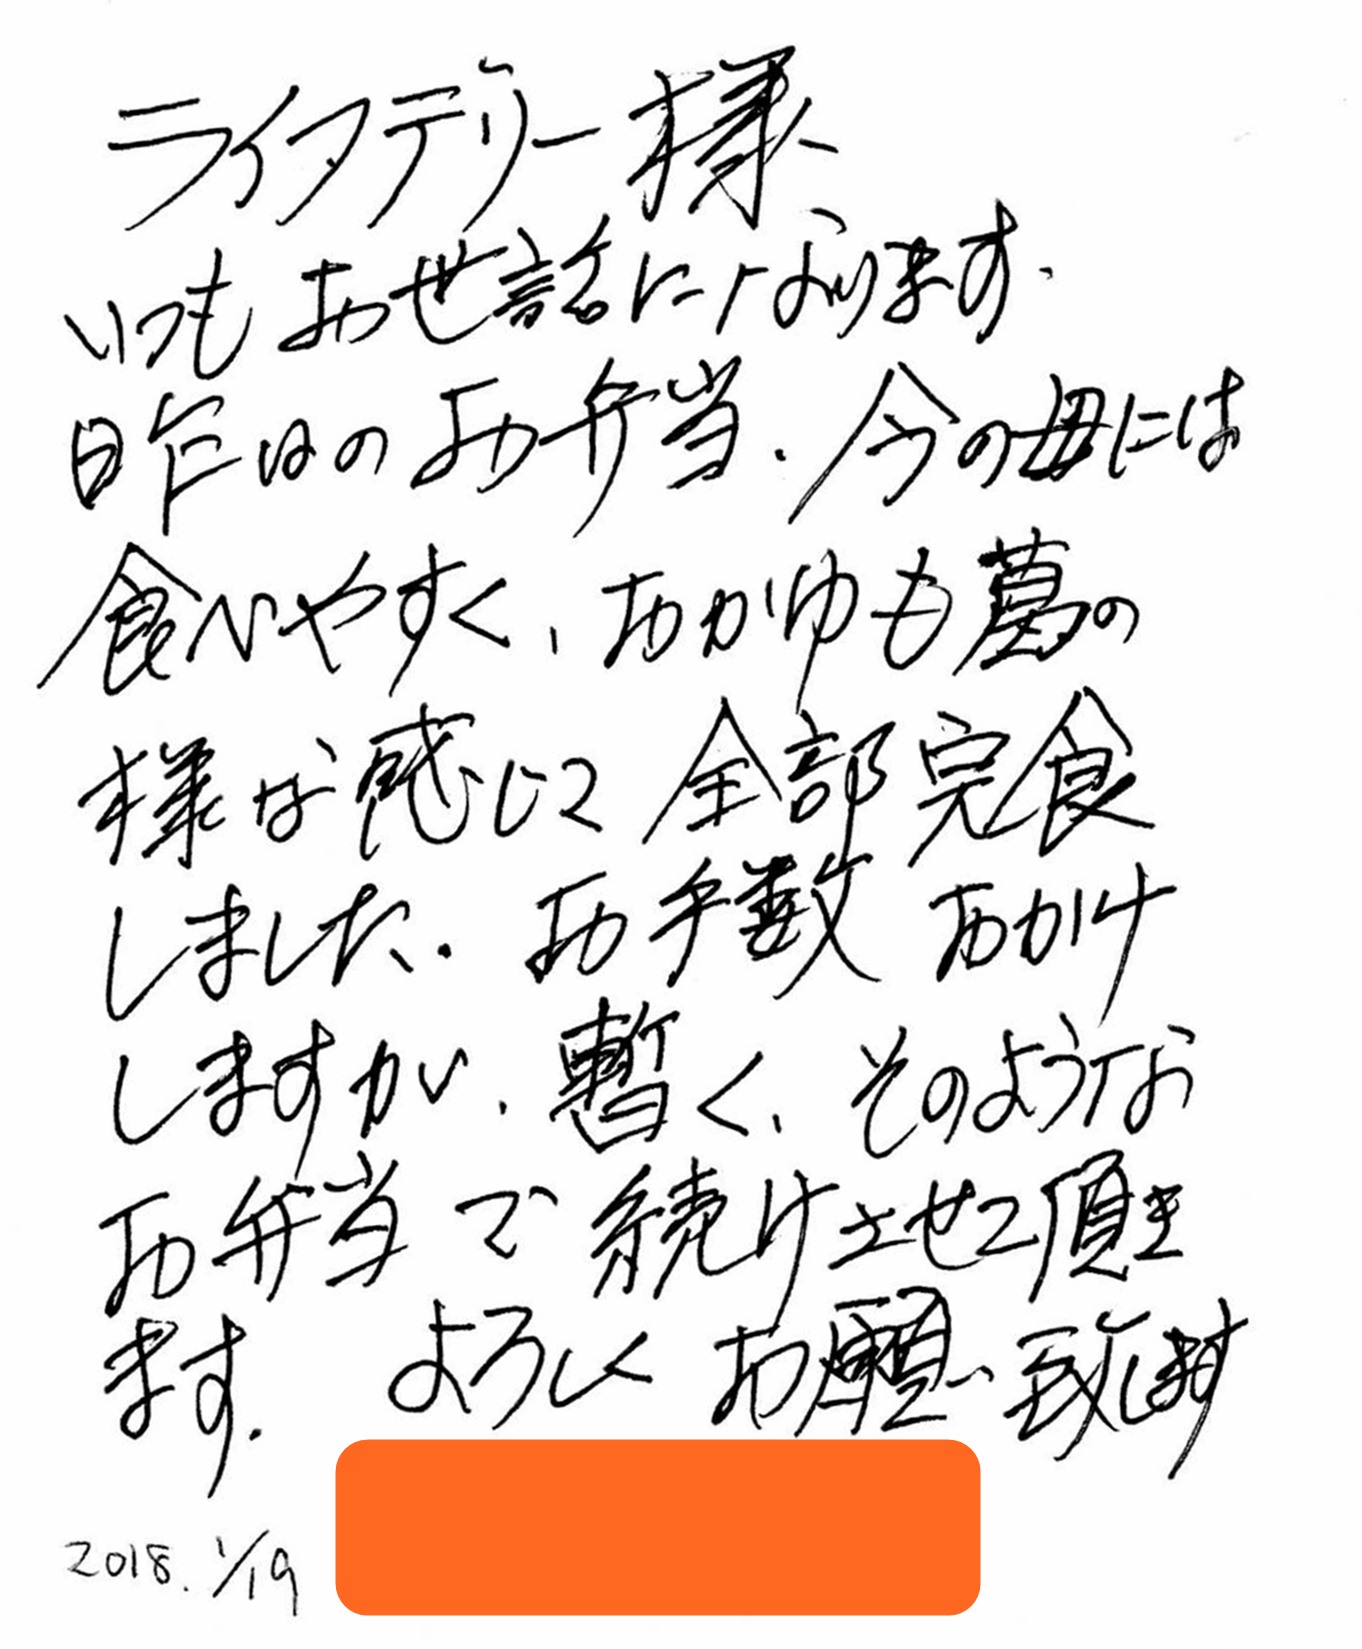 ライフデリー様
いつもお世話になります.
昨日のお弁当.今の母には
食べやすく、おかゆも葛の
様な感じで全部完食
しました. お手数おかけ
しますが、暫く、そのような
お弁当で続けさせて頂き
ます. よろしくお願い致します
2018. 1/19